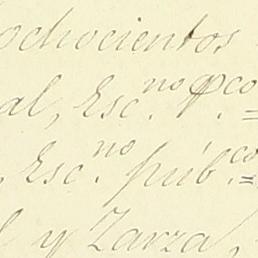 ochocientos
al, Esc.no P.co =
, Esc.no púb.co =
l y Zarza,